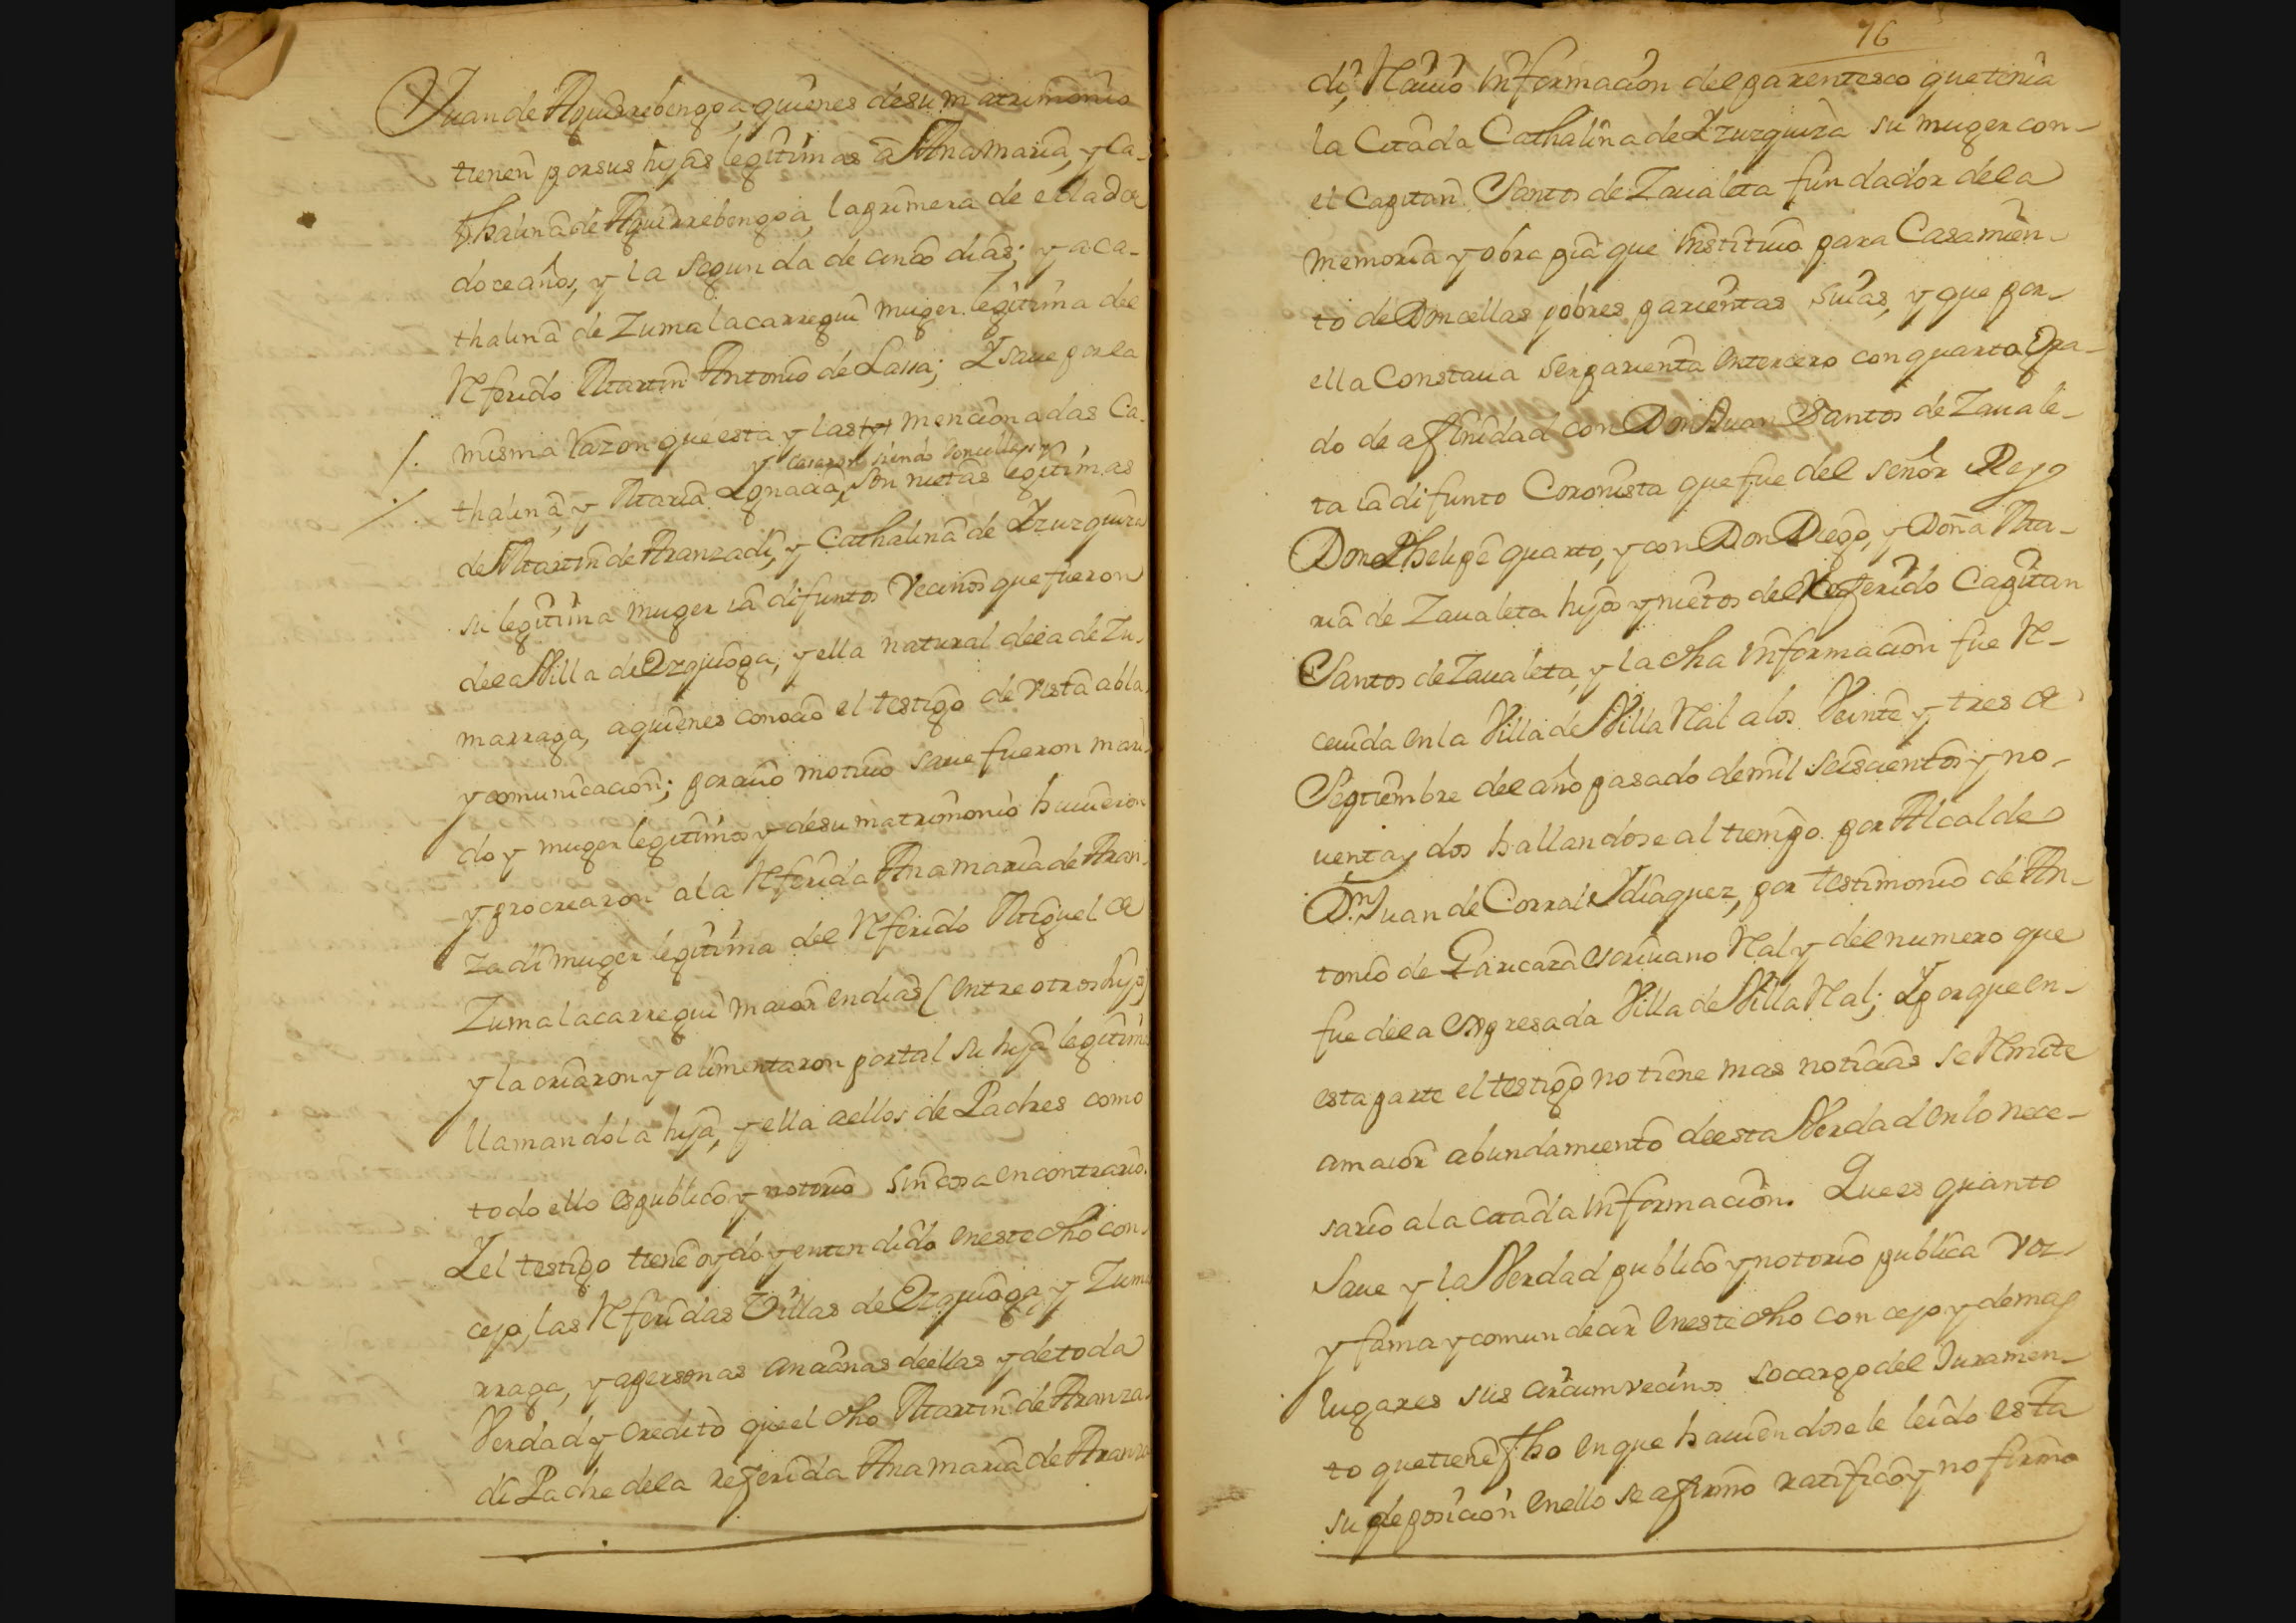 Juan de Aguirrebengoa, quienes de su matrimonio
tienen por sus hijas legitimas â Ana maria, y Ca-
thalina de Aguirrebengoa, la primera de edad de
doce años, y la segunda de cinco dias; y a Ca-
thalina de Zumalacarregui muger legitima del
Referido Martin Antonio de Lassa; Y save por la
misma razon que esta y las mencionadas Ca-
y casaron siendo doncellas
thalina, y Maria Ignacia, son nietas legitimas
de Martin de Aranzadi, y Cathalina de Yzuzquiza
su legitima muger ia difuntos vecinos que fueron
de la Villa de Ezquioga, y ella natural de la de Zu-
marraga, a quienes conocio el testigo de vista abla
y comunicacion; por cuio motivo save fueron mari-
do y muger legitimos y de su matrimonio huuieron
y procrearon a la Referida Ana maria de Aran-
zadi muger legitima del Referido Miguel de
Zumalacarregui maior en dias (entre otros hijos)
y la criaron y alimentaron por tal su hija legitima
llamandola hija, y ella a ellos de Padres como
todo ello es publico y notorio sin cosa en contrario.
Y el testigo tiene oydo y entendido en este dho con-
cejo, las Referidas Villas de Ezquioga, y Zuma
rraga, y a personas ancianas de ellas y de toda
Verdad y credito que el dho Martin de Aranza-
di Padre de la referida Ana maria de Aranza
76
di, Reciuio informacion del parentesco que tenia
la Citada Cathalina de Yzuzquiza su muger con-
el Capitan Santos de Zaualeta fundador de la
memoria y obra pia que instituio para Casamien-
to de Doncellas pobres parientas suias, y que por-
ella Constaua ser parienta en tercero con quarto Gra-
do de afinidad con Don Juan Santos de Zauale-
ta ia difunto Coronista que fue del señor Rey
Don Phelipe quarto, y con Don Diego, y Doña Ma-
ria de Zaualeta hijos y nietos del Referido Capitan
Santos de Zaualeta, y la dha informacion fue Re-
ceuida en la Villa de Villa Real a los Veinte y tres de
Septiembre del año pasado de mil seiscientos y no-
uenta y dos hallandose al tiempo por Alcalde
Dn. Juan de Corral Idiaquez, por testimonio de An-
tonio de Garicara escriuano Real y del numero que
fue de la expresada Villa de Villa Real; Y porque en-
esta parte el testigo no tiene mas noticias se Remite
a maior abundamiento de esta Verdad en lo nece-
sario a la citada informacion. Que es quanto
saue y la Verdad publico y notorio publica voz
y fama y comun decir en este dho concejo y demas
lugares sus circumvecinos so cargo del Juramen-
to que tiene fho en que hauiendosele leido esta
su deposicion en ello se afirmo ratifico y no firmo